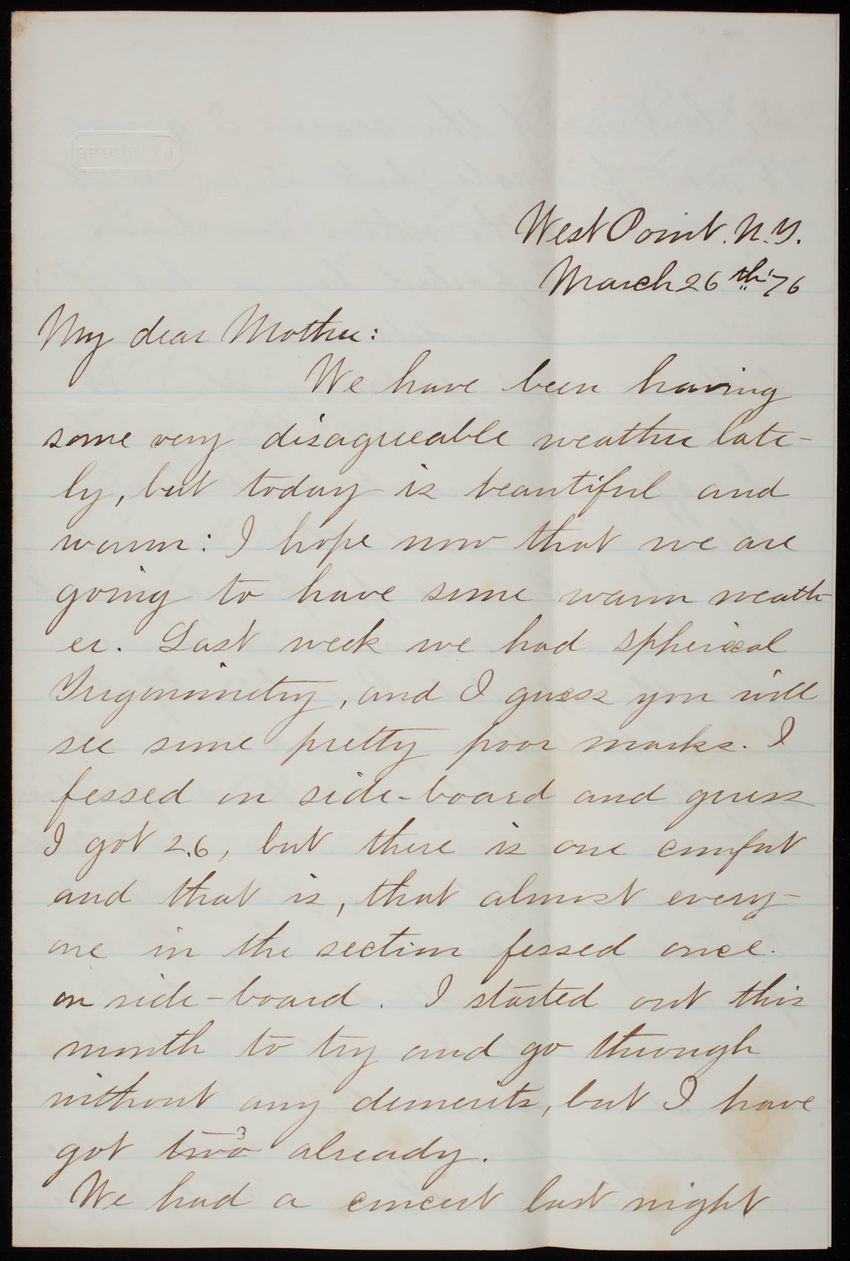 BROOKLYN
West Point. N.Y.
March 26th '76
My dear Mother:
We have been having
some very disagreeable weather late-
ly, but today is beautiful and
warm: I hope now that we are
going to have some warm weath-
er. Last week we had spherical
Trigonimetry, and I guess you will
see some pretty poor marks. I
fessed on side-board and guess
I got 2.6, but there is one comfort
and that is, that almost every-
one in the section fessed once
on side-board. I started out this
month to try and go through
without any demerits, but I have
got two 3 already.
We had a concert last night